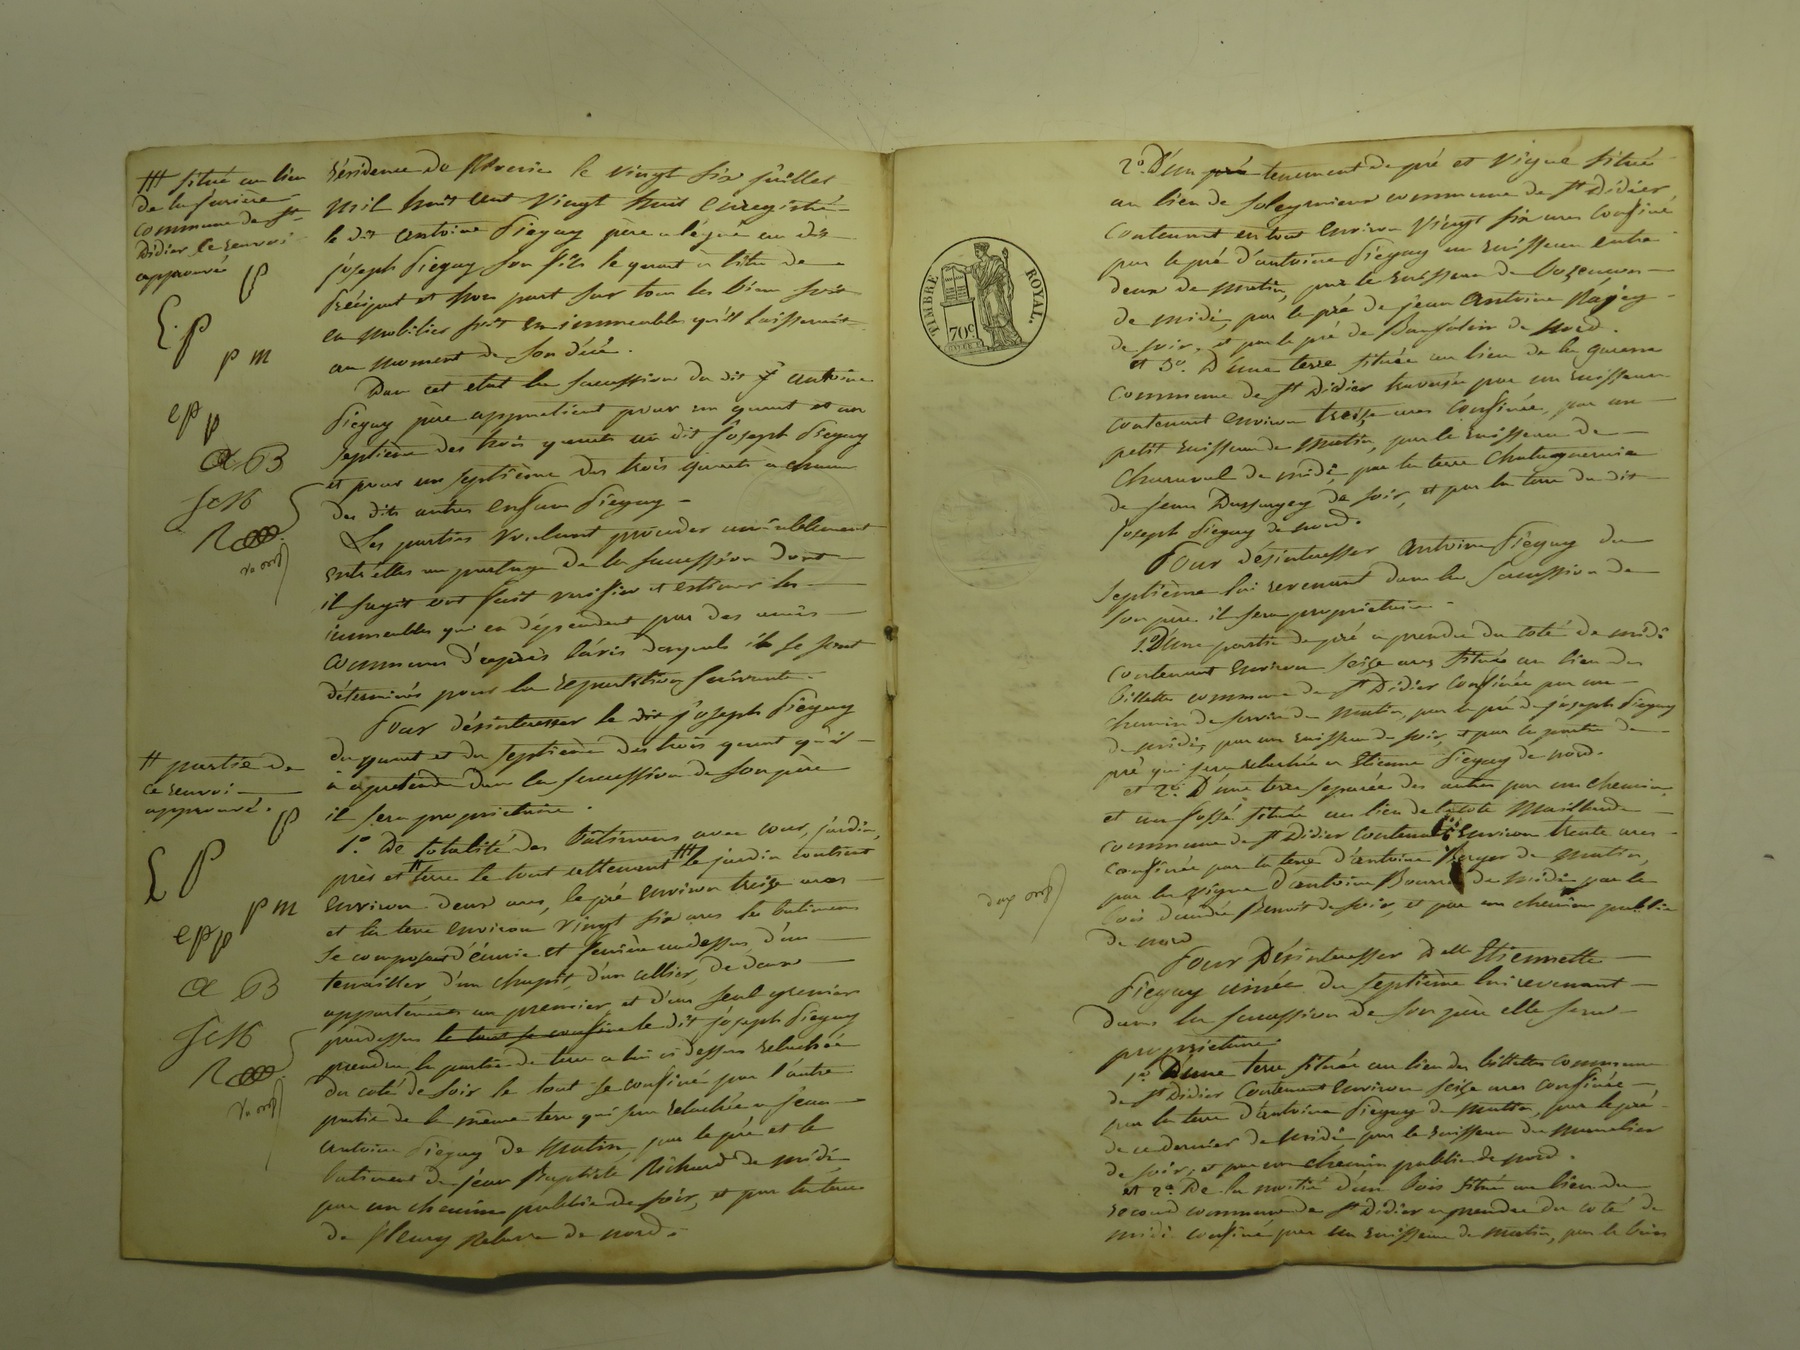 ††† situé au lieu
de la
commune de St
Didier le renvoi
approuvé
P
L. P
p m
e p p
a B
R
résidence de le vingt six juillet
mil huit cent vingt huit enregistré
le dit antoine Piegay père a légué au dit
joseph Piegay son fils le quart à titre de
préciput et hors part sur tous les biens soit
en mobilier soit en immeubles qu'il laisserait
au moment de son décè.
Dan cet etat la succession du dit antoine
Piegay père appartient pour un quart et un
septième des trois quarts au dit joseph Piegay
et pour un septième des trois quarts a chacun
des dits autres enfans Piegay -
Les parties voulant procéder amiablement
entr'elles au partage de la succession dont
il sagit ont fait verifier et estimer les
immeubles qui en dépendent par des amis
communs d'après l'avis desquels ils se sont
déterminés pour la repartition suivante.
Pour désintéresser le dit joseph Piegay
du quart et du septième des trois quart qu'il
a a pretendre dans la succession de son père
il sera proprietaire.
†† partie de
ce renvoi
approuvé.
P
L P
p m
e p p
a B
R
1º De totalité des bâtimens avec cour, jardin,
près et †† terre le tout attenant ††† le jardin contient
environ deux ares, le pré environ treize ares
et la terre environ vingt six ares les batimens
se composent d'écurie et fenière au dessus, d'un
tenailler d'un chapit, d'un cellier, de deux
appartements au premier et d'un seul grenier
pardessus le tout se confine le dit joseph Piegay
prendra la partie de terre a lui ci dessus relachée
du coté de soir le tout se confiné par l'autre
partie de la même terre qui sera relachée a jean
antoine Piegay de matin, par le pré et le
batiment de jean Baptiste Richard de midi
par un chemin public de soir, et par la terre
de fleury de nord.
TIMBRE ROYAL.
70c
2º. D'un pré tenement de pré et vigne situé
au lieu de soleymieux commune de St Didier
contenant en tout environ vingt six ares confiné
par le pré d'antoine Piegay un ruisseau entre
deux de matin, par le ruisseau de
de midi, par le pré de jean antoine
de soir, et par le pré de de nord.
et 3º. D'une terre située au lieu de la guerre
commune de St Didier traversée par un ruisseau
contenant environ treize ares confinée, par un
petit ruisseau de matin, par le ruisseau de
de midi, par la terre
de jean de soir, et par la terre du dit
joseph Piegay de nord.
Pour désintéresser antoine Piegay du
septième lui revenant dans la succession de
son père il sera proprietaire.
1º. D'une partie de pré a prendre du coté de midi
contenant environ seize ares située au lieu des
billettes commune de St Didier confinée par un
chemin de service de matin, par le pré de joseph Piegay
de midi, par un ruisseau de soir, et par la partie de
pré qui sera relachée a Etienne Piegay de nord.
et 2º. D'une terre separée des autres par un chemin
et un fossé située au lieu de la cote
commune de St Didier contenant environ trente ares
confinée par la terre d'antoine Berger de matin,
par la vigne d'antoine de midi par le
bois d'andré Benoit de soir, et par un chemin public
de nord
Pour Désintéresser Delle Etiennette
Piegay ainée du septième lui revenant
dans la succession de son père elle sera
proprietaire.
1º. D'une terre située au lieu des billettes commune
de St Didier contenant environ seize ares confinée
par la terre d'antoine Piegay de matin, par le pré
de ce dernier de midi par le ruisseau du
de soir, et par un chemin public de nord.
et 2º. De la moitié d'un bois situé au lieu du
commune de St Didier a prendre du coté de
midi confiné par un ruisseau de matin, par le bois